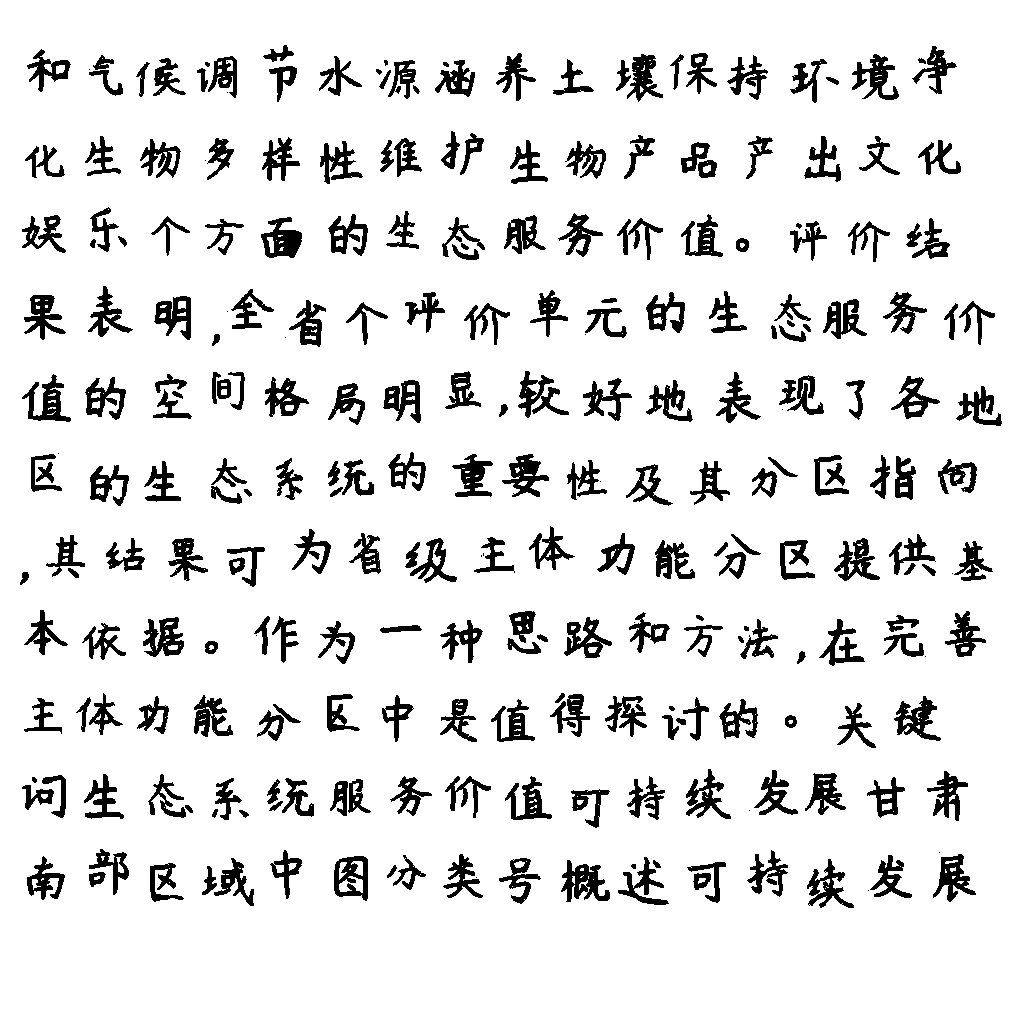 和气候调节水源涵养土壤保持环境净
化生物多样性维护生物产品产出文化
娱乐个方面的生态服务价值。评价结
果表明,全省个评价单元的生态服务价
值的空间格局明显,较好地表现了各地
区的生态系统的重要性及其分区指向
,其结果可为省级主体功能分区提供基
本依据。作为一种思路和方法,在完善
主体功能分区中是值得探讨的。关键
词生态系统服务价值可持续发展甘肃
南部区域中图分类号概述可持续发展